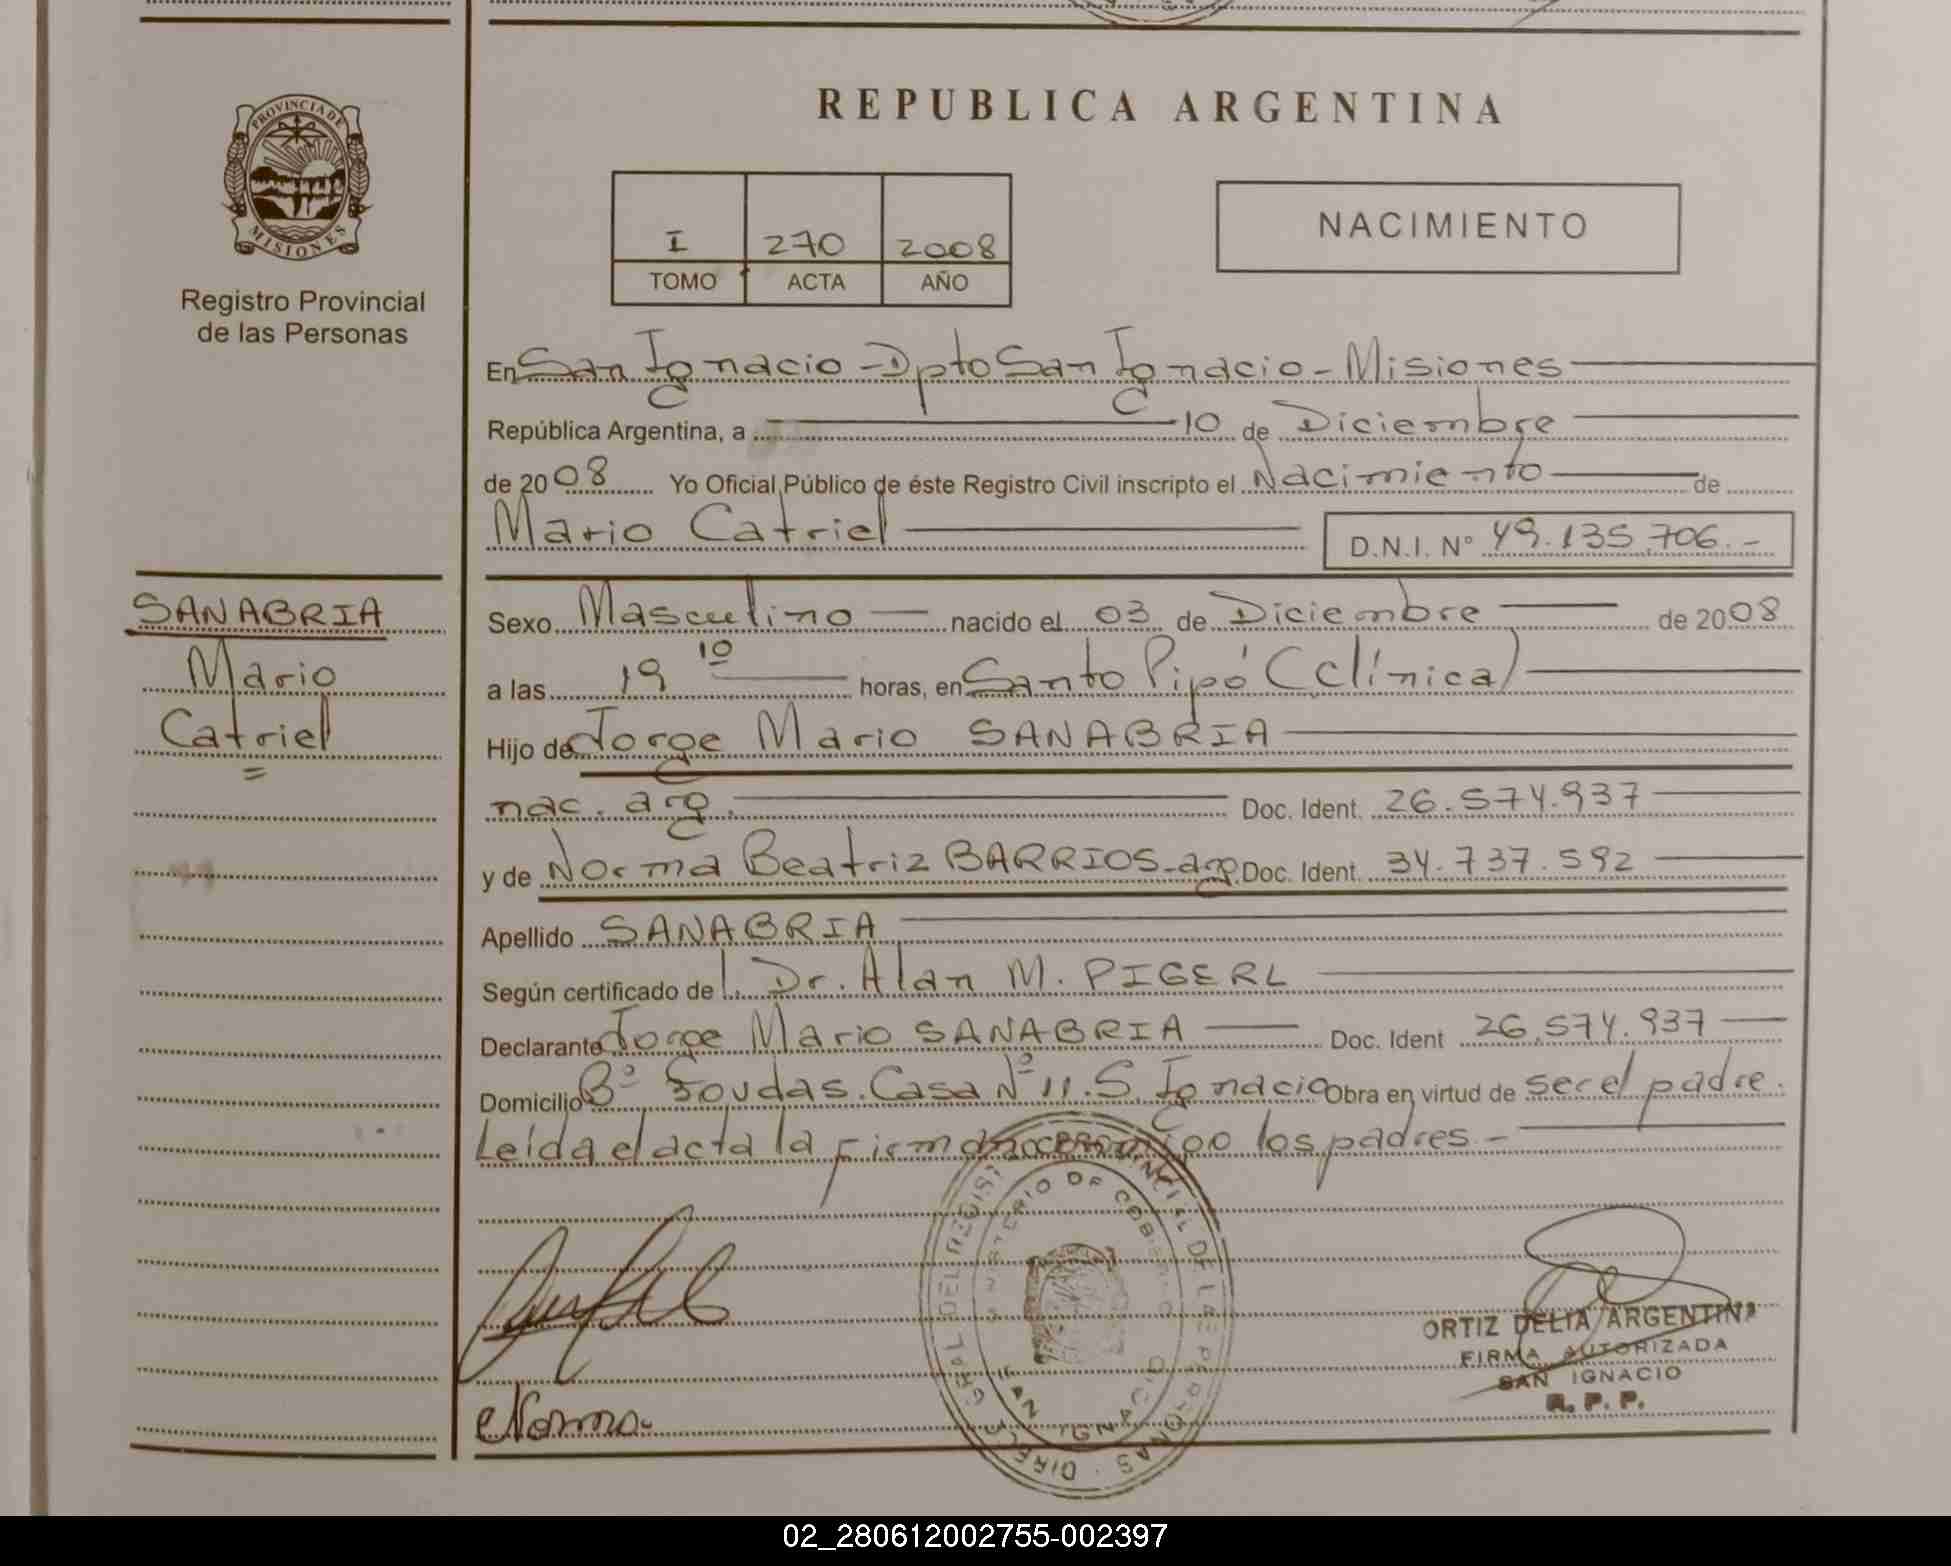 PROVINCIA DE
MISIONES
Registro Provincial
de las Personas
REPUBLICA ARGENTINA
I 270 2008
TOMO ACTA AÑO
NACIMIENTO
En San Ignacio - Dpto San Ignacio - Misiones
República Argentina, a 10 de Diciembre
de 2008 Yo Oficial Público de éste Registro Civil inscripto el Nacimiento de
Mario Catriel D.N.I. N° 49.135.706.-
SANABRIA
Mario
Catriel
Sexo Masculino nacido el 03 de Diciembre de 2008
a las 19 10 horas, en Santo Pipó (clínica)
Hijo de Jorge Mario SANABRIA
nac. arg. Doc. Ident. 26.574.937
y de Norma Beatriz BARRIOS - arg. Doc. Ident. 34.737.592
Apellido SANABRIA
Según certificado de l. Dr. Alan M. PIGERL
Declarante Jorge Mario SANABRIA Doc. Ident 26.574.937
Domicilio B° Casa N° 11. S. Ignacio Obra en virtud de ser el padre.
Leída el acta la firman conmigo los padres.-
Norma
ORTIZ DELIA ARGENTINA
FIRMA AUTORIZADA
SAN IGNACIO
R. P. P.
02_280612002755-002397